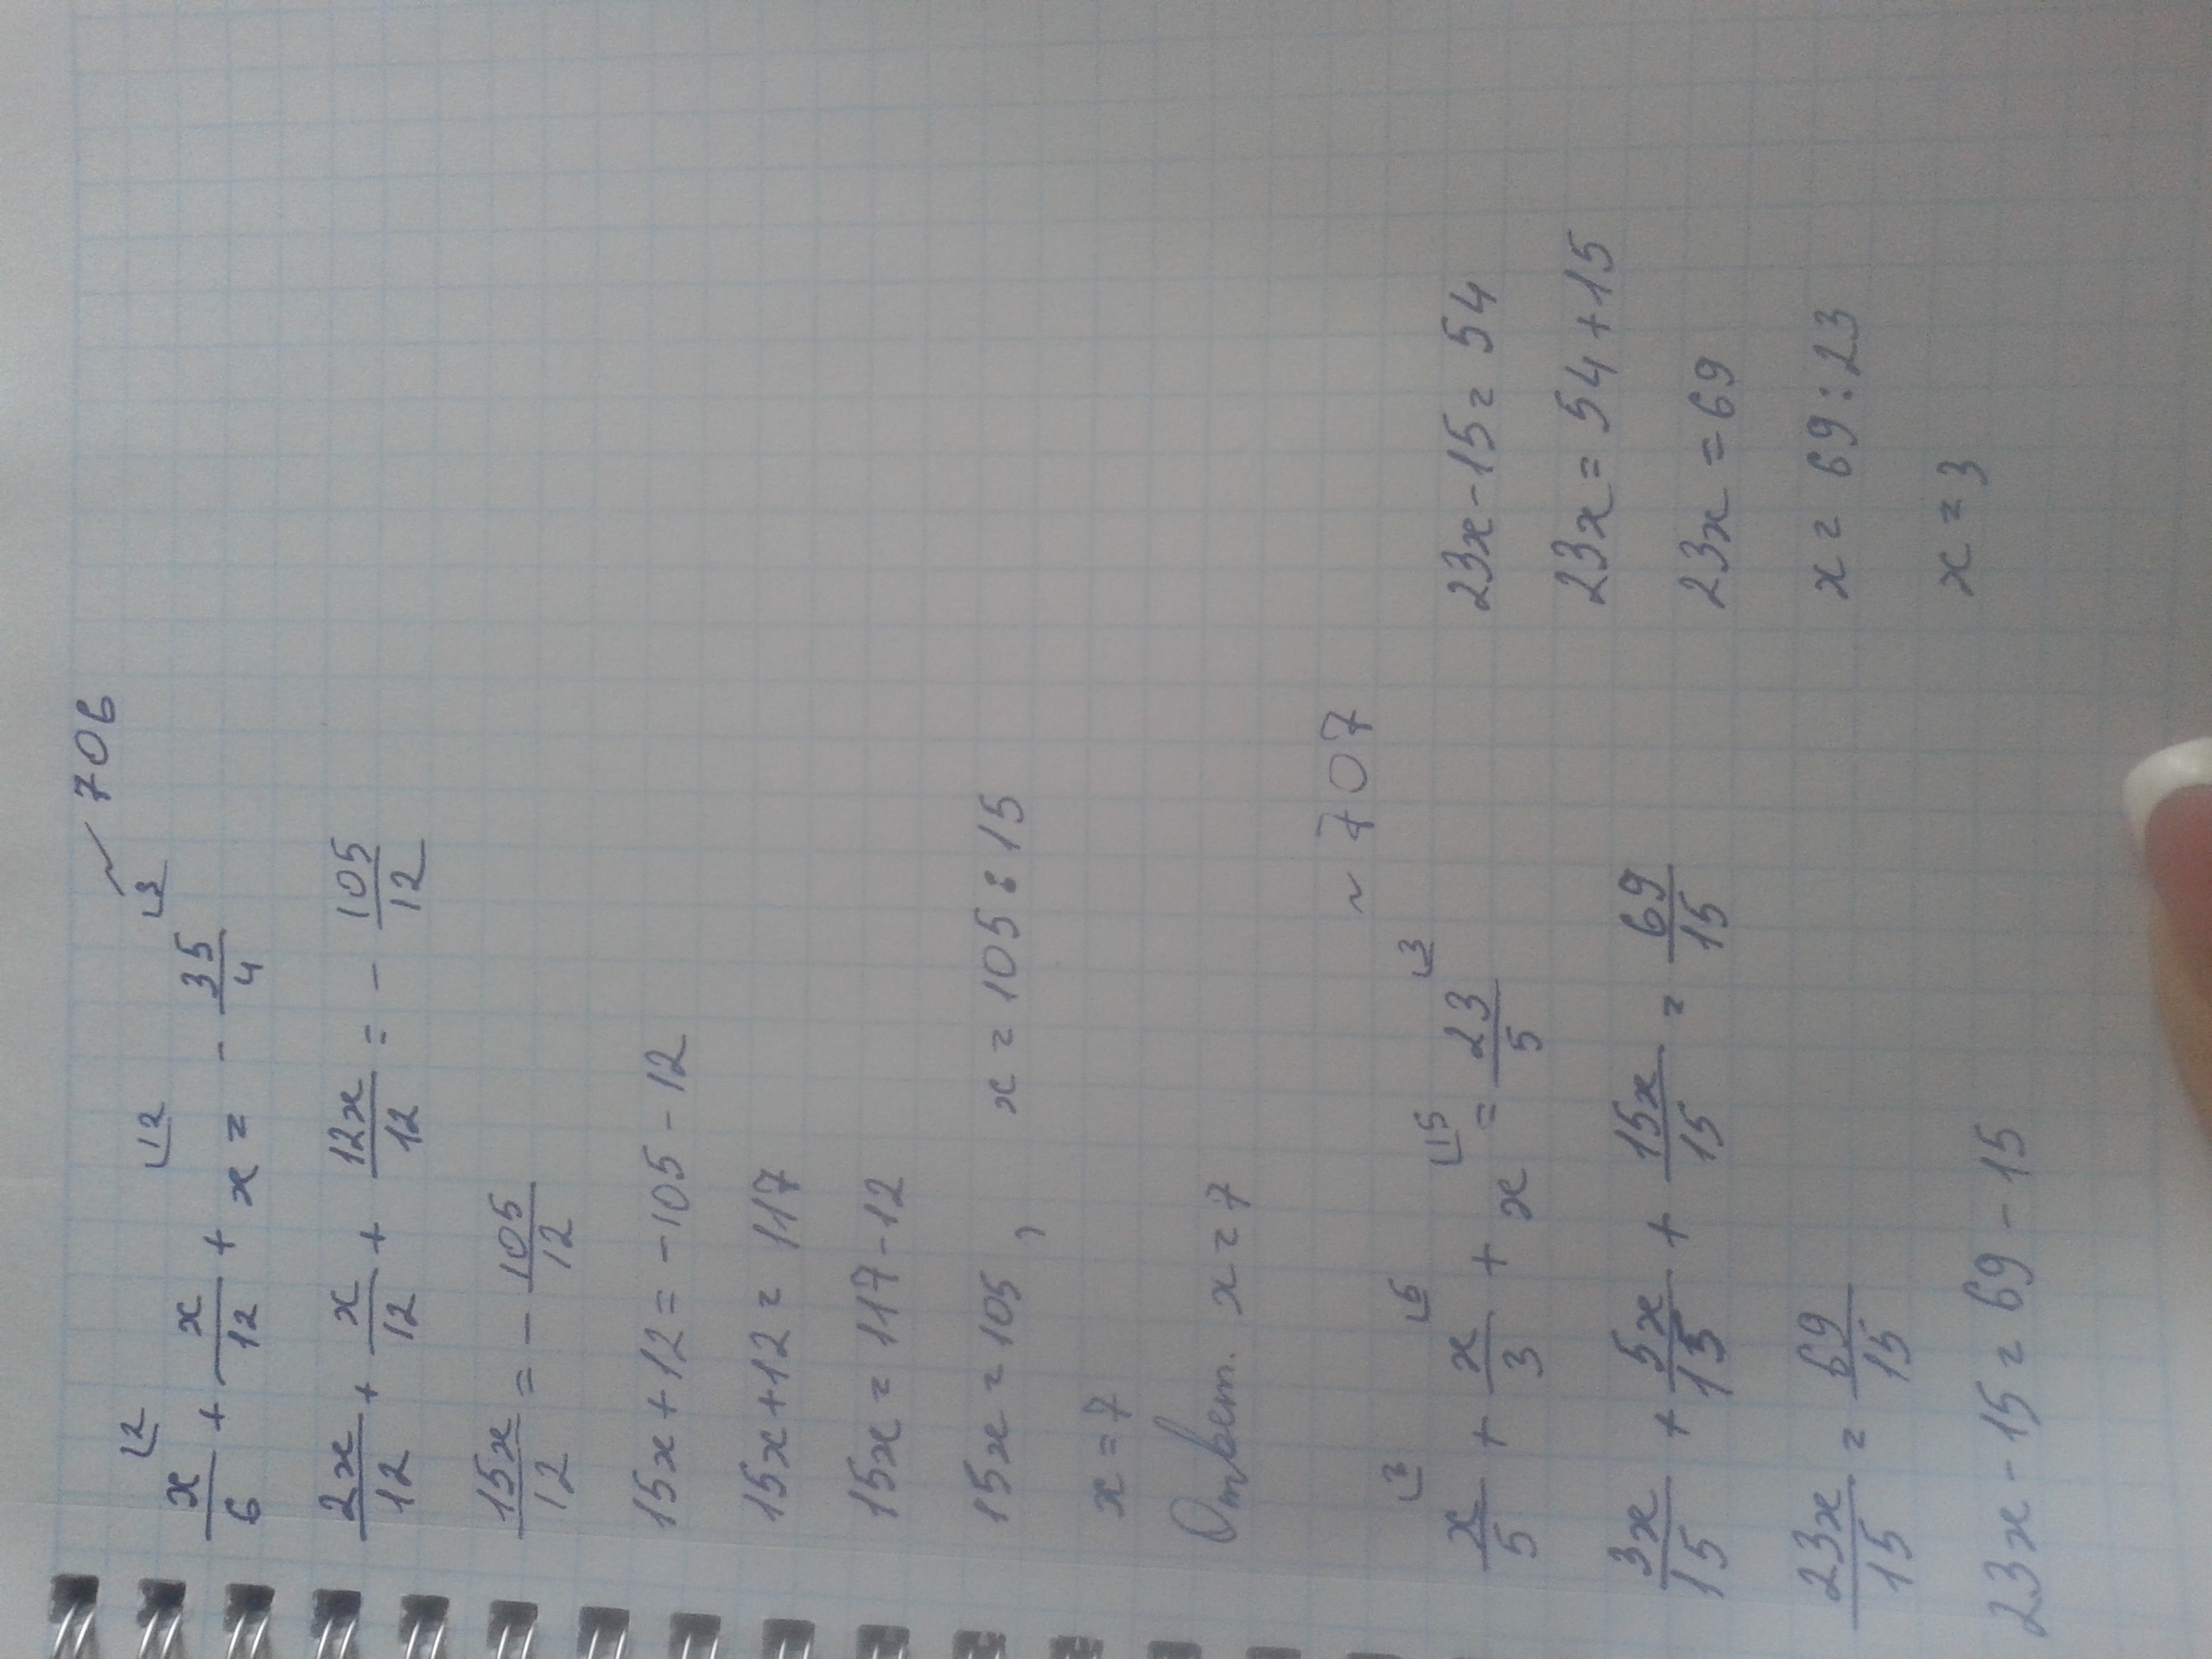 ~ 706
x/6 ⌊2 + x/12 + x ⌊12 = - 35/4 ⌊3
2x/12 + x/12 + 12x/12 = - 105/12
15x/12 = - 105/12
15x + 12 = -105 - 12
15x + 12 = 117
15x = 117 - 12
15x = 105, x = 105 : 15
x = 7
Ответ. x = 7
~ 707
x/5 ⌊3 + x/3 ⌊5 + x ⌊15 = 23/5 ⌊3
3x/15 + 5x/15 + 15x/15 = 69/15
23x/15 = 69/15
23x - 15 = 69 - 15
23x - 15 = 54
23x = 54 + 15
23x = 69
x = 69 : 23
x = 3